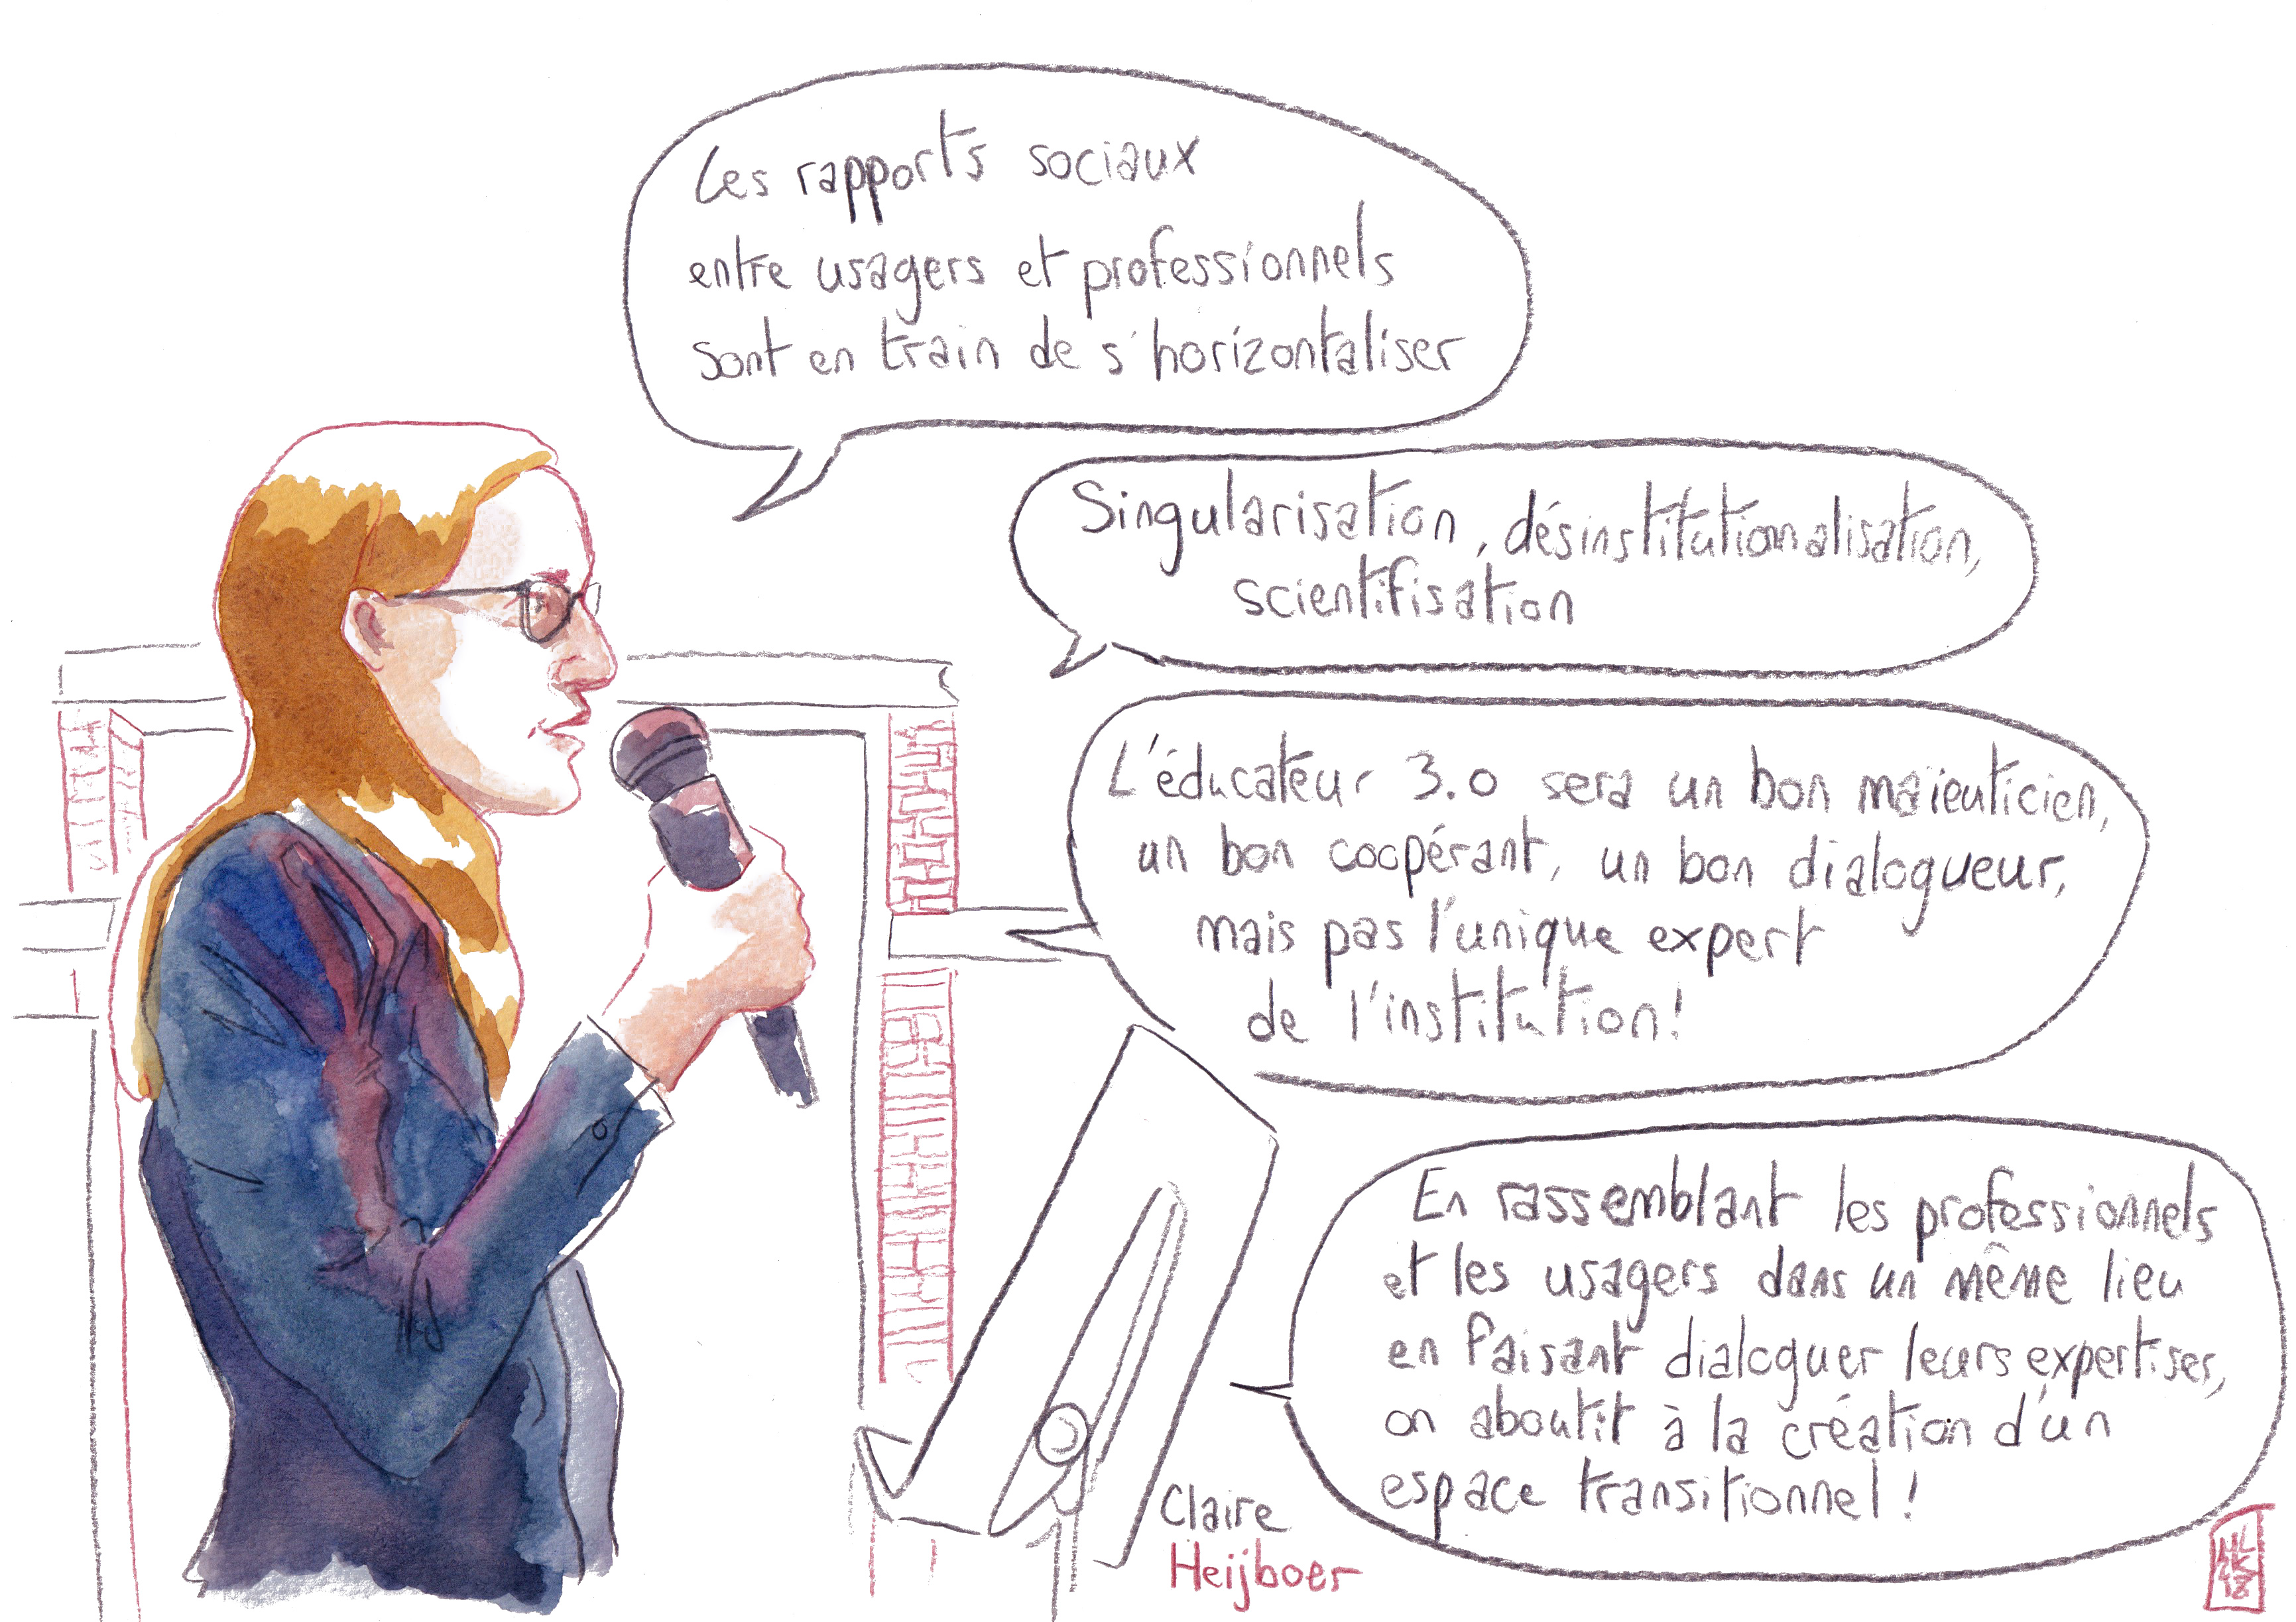 Les rapports sociaux
entre usagers et professionnels
sont en train de s'horizontaliser
Singularisation, désinstitutionnalisation,
scientifisation
L'éducateur 3.0 sera un bon maïeuticien,
un bon coopérant, un bon dialogueur,
mais pas l'unique expert
de l'institution!
En rassemblant les professionnels
et les usagers dans un même lieu
en faisant dialoguer leurs expertises,
on aboutit à la création d'un
espace transitionnel!
Claire
Heijboer